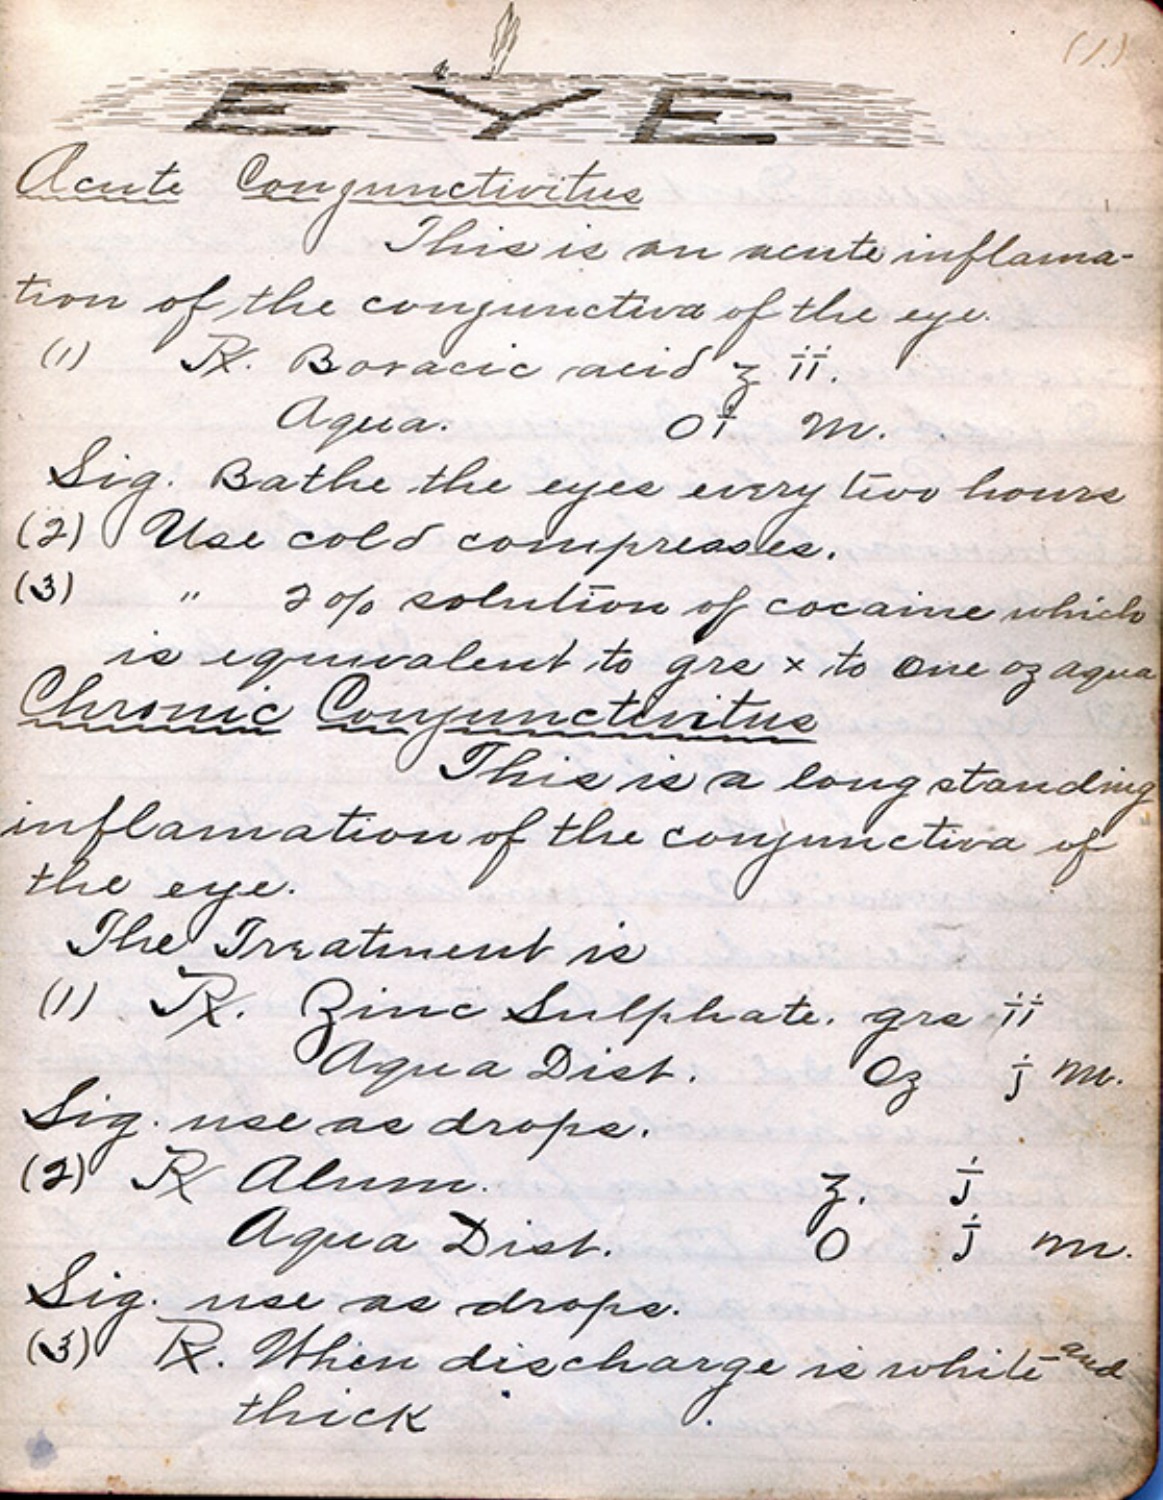 (1.)
EYE
Acute Conjunctivitus
This is an acute inflama-
tion of the conjunctiva of the eye.
(1) ℞. Boracic acid ʒ ii.
Aqua. Oi M.
Sig. Bathe the eyes every two hours
(2) Use cold compresses.
(3) " 2% solution of cocaine which
is equivalent to grs x to one oz aqua
Chronic Conjunctivitus
This is a long standing
inflamation of the conjunctiva of
the eye.
The Treatment is
(1) ℞. Zinc Sulphate. grs ii
Aqua Dist. Oz j M.
Sig. use as drops.
(2) ℞ Alum. ʒ. j
Aqua Dist. O j M.
Sig. use as drops.
(3) ℞. When discharge is white and
thick